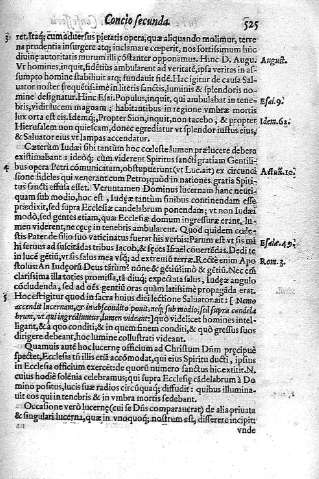 Concio secunda.
525
ret. Itaq; cum aduersus pietatis opera, quæ aliquando molimur, terre
na prudentia insurgere atq; inclamare cœperit, nos fortissimum hoc
diuinæ autoritatis murum illi obstare opponamus. Hinc D. Augu
August.
Vt homines, inquit, fidētius ambularent ad veritatē, ipsa veritas in as-
sumpto homine stabiliuit atq; fundauit fidē. Hac igitur de causa Sal-
uator noster frequētissimè in literis sanctis, luminis & splendoris no-
mine designatur. Hinc Esai. Populus, inquit, qui ambulabat in tene-
Esai.9.
bris, vidit lucem magnam; habitantibus in regione vmbræ mortis
lux orta est eis. Idemq́; Propter Sion, inquit, non tacebo, & propter
Idem.62.
Hierusalem non quiescam, donec egrediatur vt splendor iustus eius,
& Saluator eius vt lampas accendatur.
Cæterùm Iudæi sibi tantùm hoc cœleste lumen prælucere debere
existimabant: ideoq́; cùm viderent Spiritus sancti gratiam Gentili-
4
bus opera Petri cōmunicatam, obstupuerunt (vt Luc. ait) ex circunci
Actu.10.
sione fideles qui venerant cum Petro, quòd in nationes gratia Spiri-
tus sancti effusa esset. Veruntamen Dominus lucernam hanc neuti-
quam sub modio, hoc est, Iudææ tantùm finibus continendam esse
prædixit, sed supra Ecclesiæ candelabrum ponendam; vt non Iudæi
modò, sed gentes etiam, quæ Ecclesiæ domum ingressuræ erant, lu-
men viderent, nec ęce in tenebris ambularent. Quod quidem cœle-
stis Pater de filio suo vaticinatus fuerat his verbis: Parum est vt sis mi
Esai.49.
hi seruus ad suscitādas tribus Iacob, & feces Israel conuertēdas. Dedi te
in lucē gētiū, vt sis salus mea vsq; ad extremū terræ. Rectè enim Apo
stolus: An Iudęorū Deus tātùm? nōne & gētiū? imò & gētiū. Nec est
Rom.3.
clarissima illa toties promissa, tā diuq́; expectata salus, Iudææ angulo
cōcludenda, sed ad oēs gentiū oras quàm latissimè propagāda erat.
5
Hoc est igitur quod in sacra huius diei lectione Saluator ait: [Nemo
accendit lucernam, et in abscondito ponit, neq; sub modio, sed supra candela
brum, vt qui ingrediuntur lumen videant] quo videlicet homines intelli-
gant, & à quo conditi, & in quem finem conditi, & quò gressus suos
dirigere debeant, hoc lumine collustrati videant.
Quamuis autē hoc lucernę officium ad Christum Dūm præcipuè
spectet, Ecclesia tn̄ illis etiā accōmodat, qui eius Spiritu ducti, ipsius
in Ecclesia officium exercēt: de quorū numero sanctus hic extitit N.
cuius hodiè solēnia celebramus; qui supra Ecclesię cādelabrum à Do
mino positus, lucis suæ radios circumquaq; diffudit: quibus illumina-
uit eos qui in tenebris & in vmbra mortis sedebant.
Occasione verò lucernę (cui se Dn̄s comparauerat) de alia priuata
& singulari lucerna, quæ in vnoquoq; nostrum est, disserere incipit:
vnde